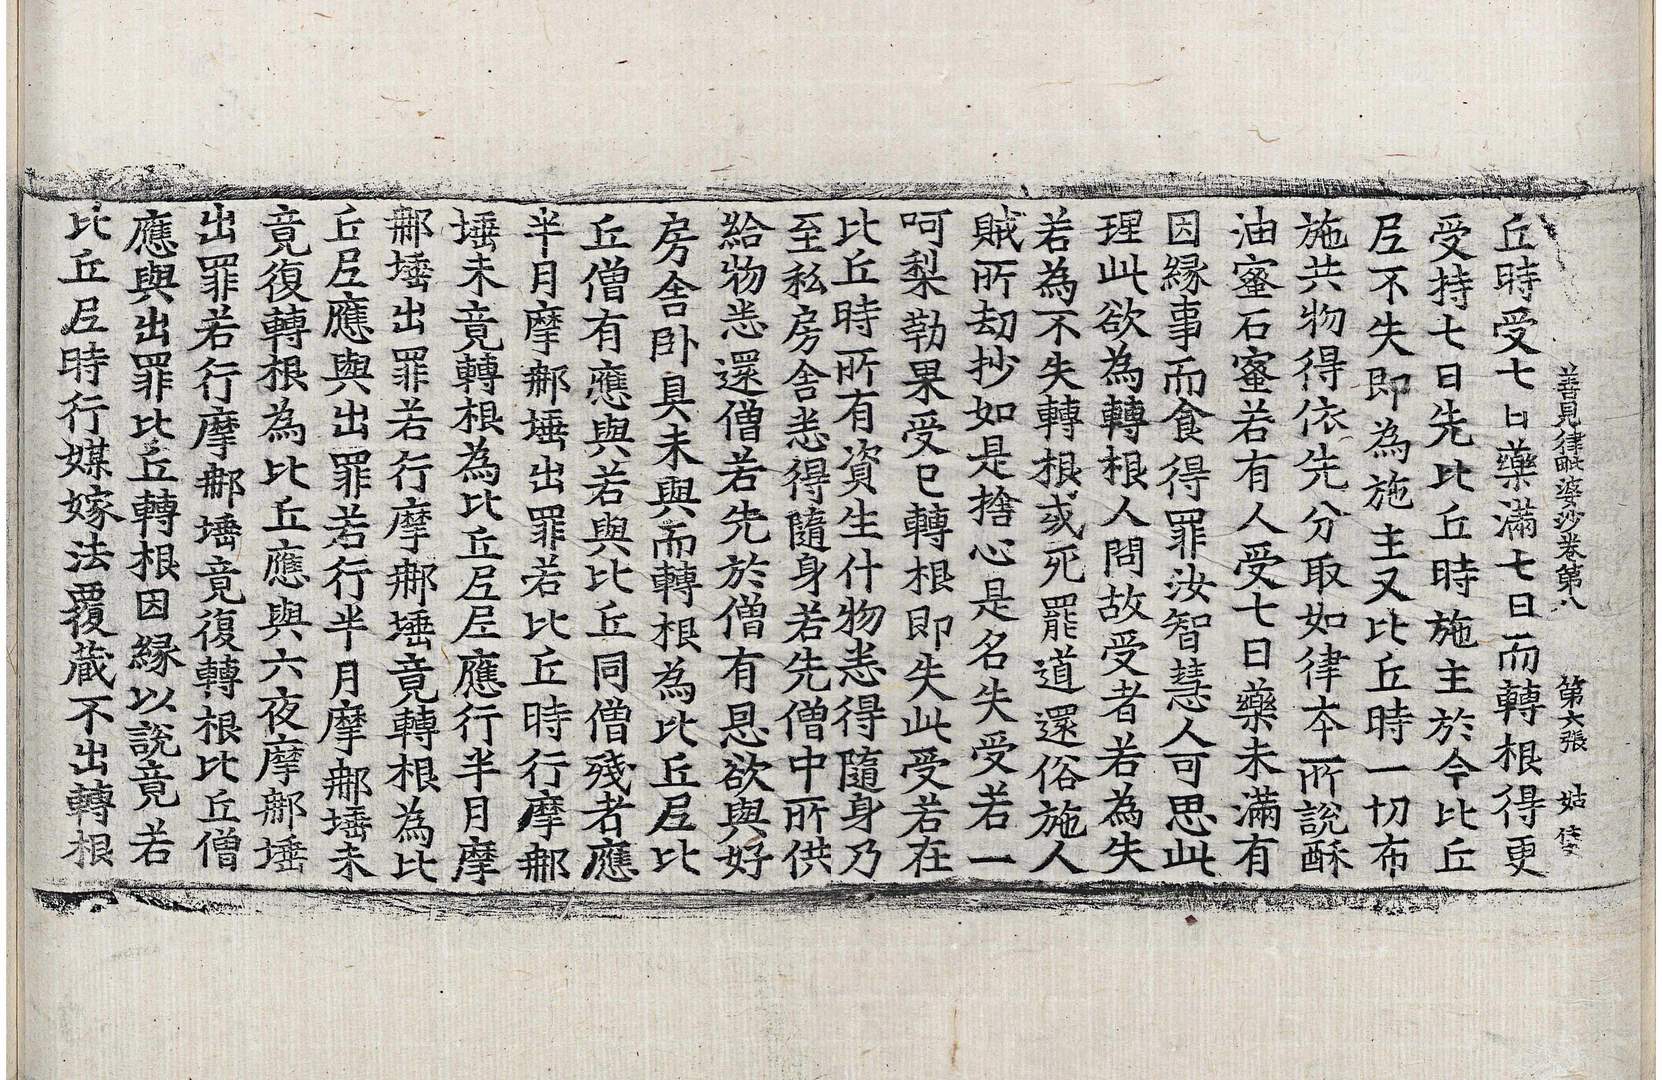 善見律毗婆沙卷第八 第六張 姑
丘時受七日藥滿七日而轉根得更
受持七日先比丘時施主於今比丘
尼不失即為施主又比丘時一切布
施共物得依先分取如律本所說酥
油蜜石蜜若有人受七日藥未滿有
因緣事而食得罪汝智慧人可思此
理此欲為轉根人問故受者若為失
若為不失轉根或死罷道還俗施人
賊所劫抄如是捨心是名失受若一
呵梨勒果受已轉根即失此受若在
比丘時所有資生什物悉得隨身乃
至私房舍悉得隨身若先僧中所供
給物悉還僧若先於僧有恩欲與好
房舍卧具未與而轉根為比丘尼比
丘僧有應與若與比丘同僧殘者應
半月摩郍埵出罪若比丘時行摩郍
埵未竟轉根為比丘尼尼應行半月摩
郍埵出罪若行摩郍埵竟轉根為比
丘尼應與出罪若行半月摩郍埵未
竟復轉根為比丘應與六夜摩郍埵
出罪若行摩郍埵竟復轉根比丘僧
應與出罪比丘轉根因緣以說竟若
比丘尼時行媒嫁法覆藏不出轉根